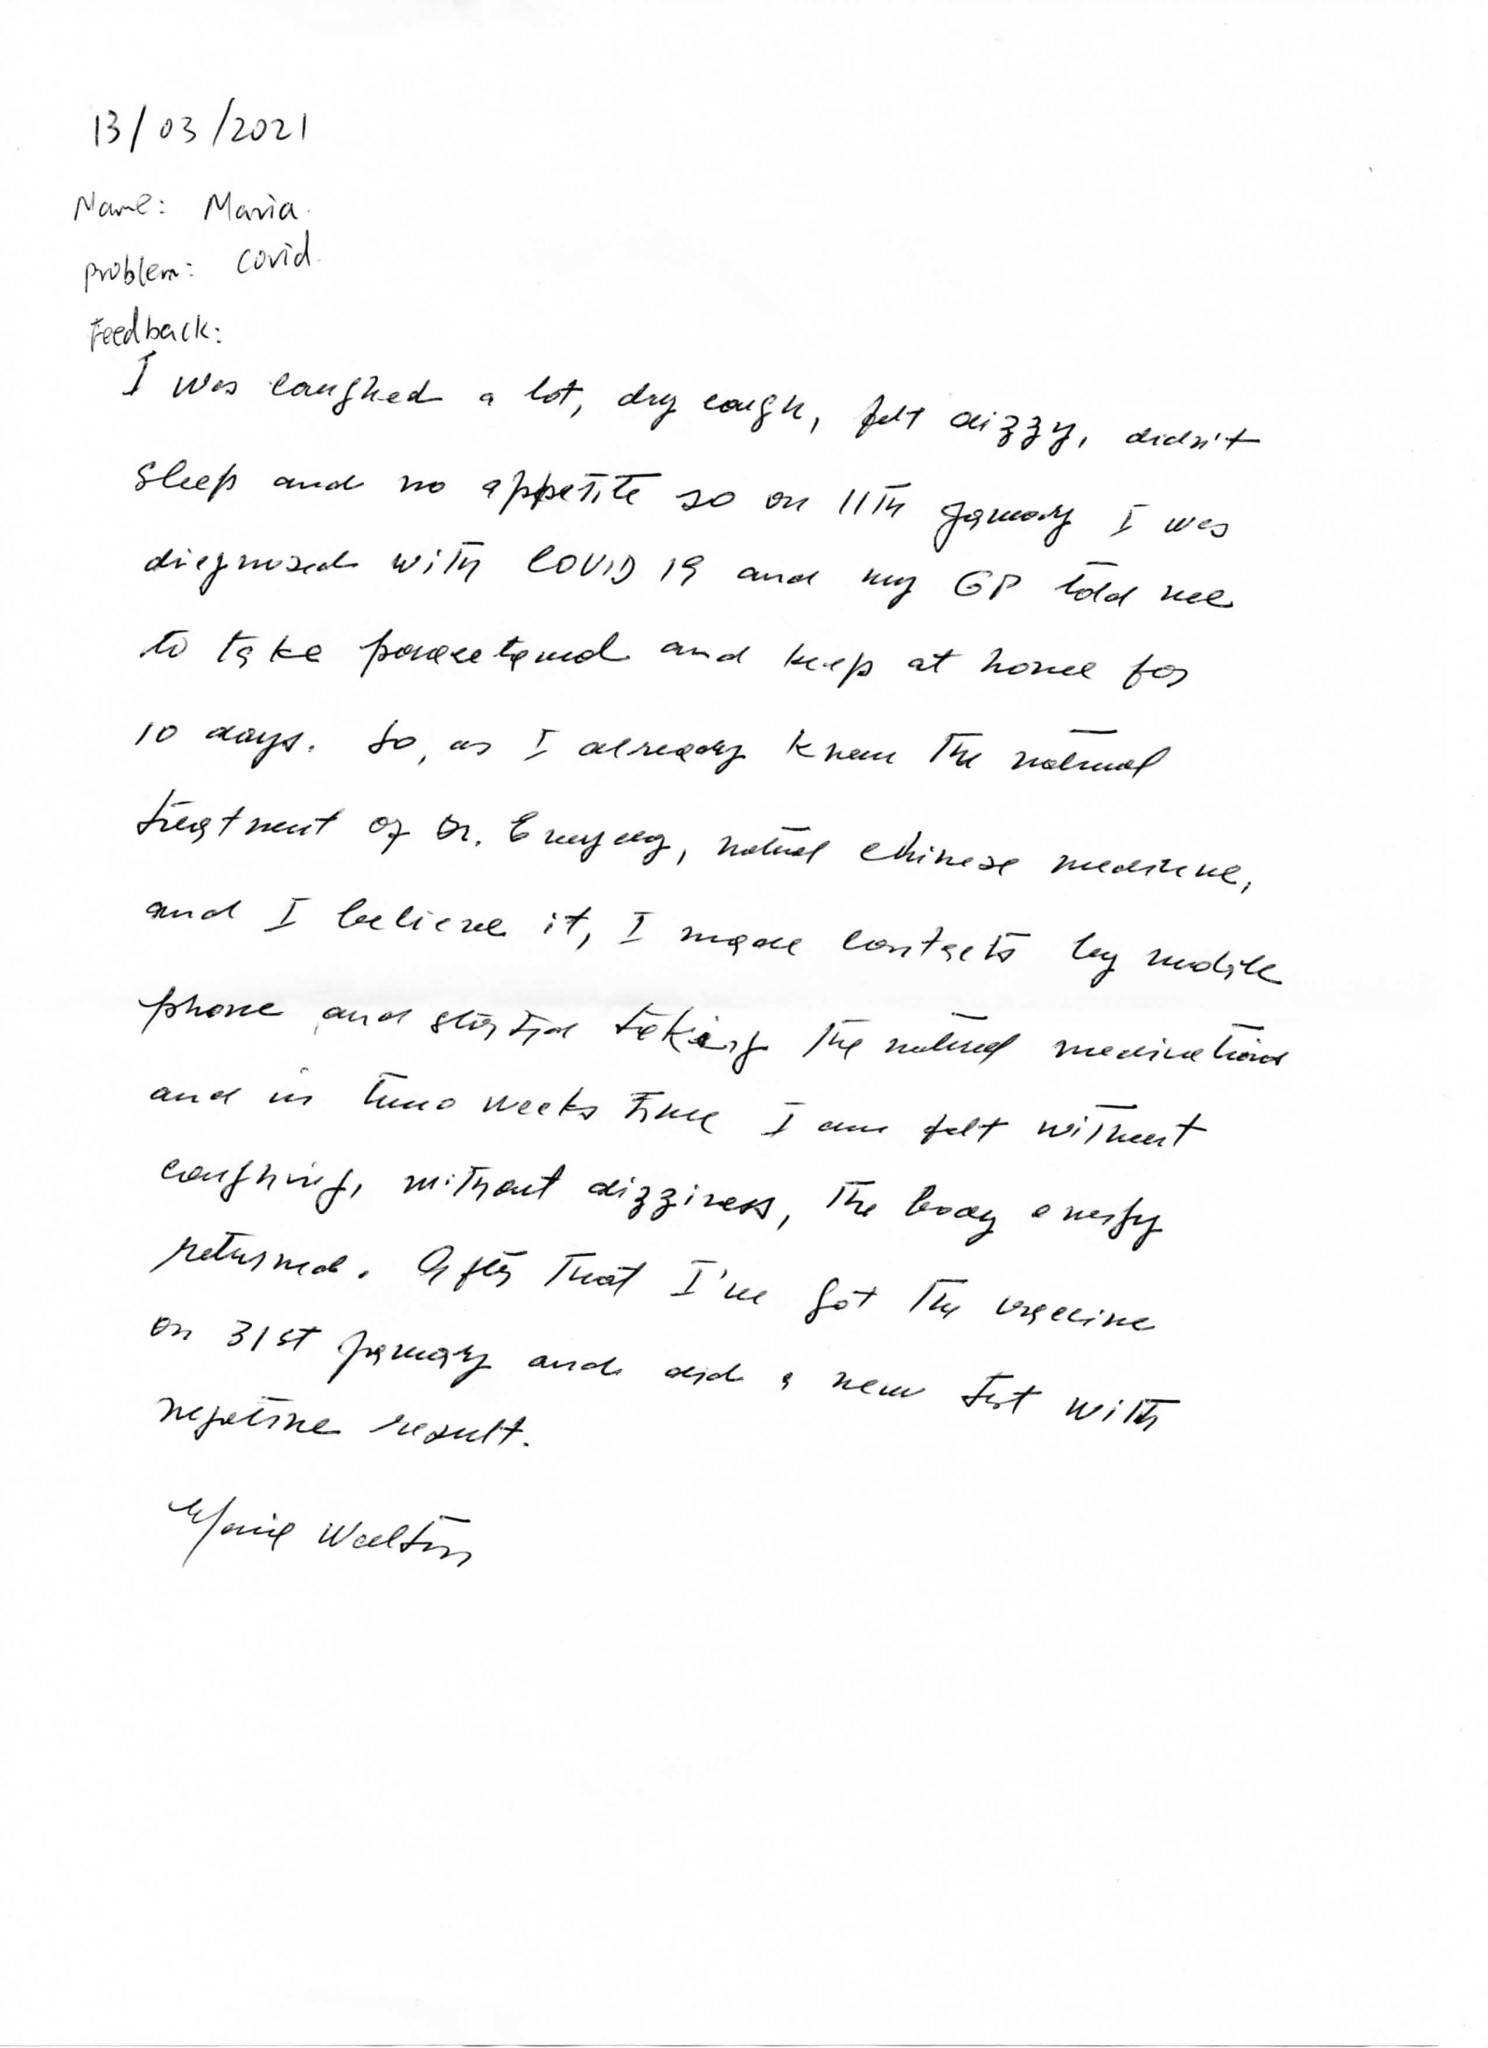 13/03/2021
Name: Maria.
Problem: Covid.
Feedback:
I was coughed a lot, dry cough, felt dizzy, didn't
sleep and no appetite so on 11th January I was
diagnosed with COVID 19 and my GP told me
to take paracetamol and keep at home for
10 days. So, as I already knew the natural
treatment of Dr. natural chinese medicine,
and I believe it, I made contacts by mobile
phone and started taking the natural medication
and in two weeks time I am felt without
coughing, without dizziness, the body energy
returned. After that I've got the vaccine
on 31st January and did a new test with
negative result.
Maria Walton